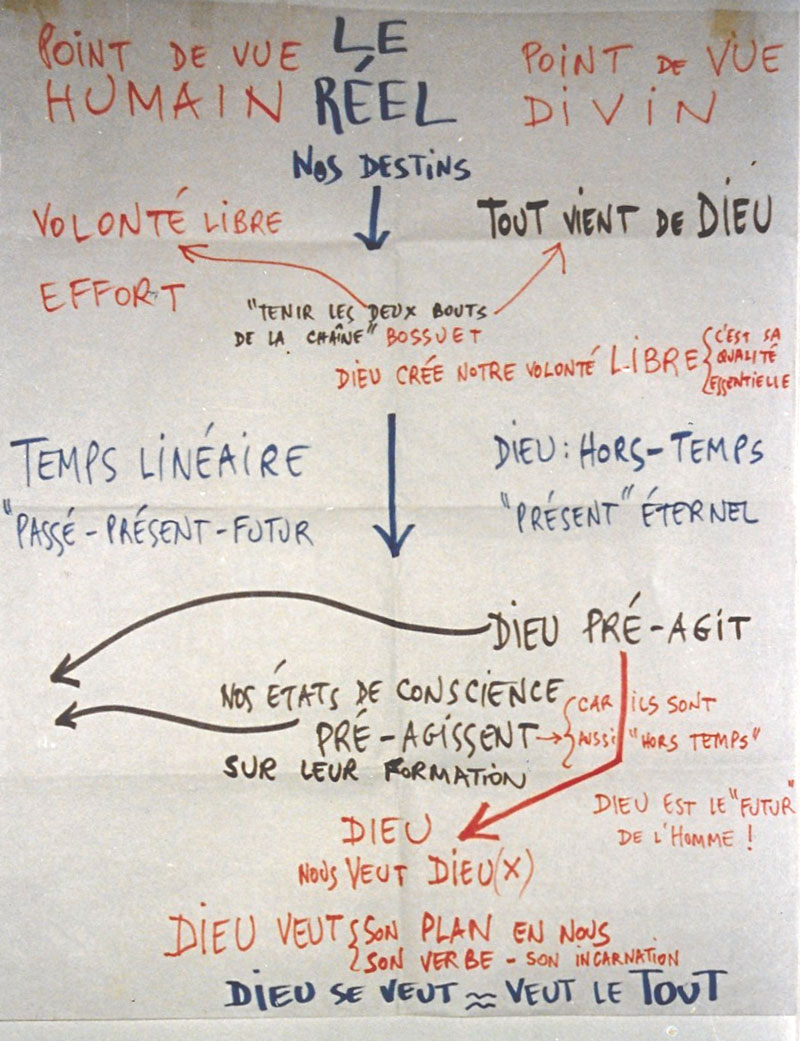 LE
RÉEL
POINT DE VUE
HUMAIN
POINT DE VUE
DIVIN
NOS DESTINS
VOLONTÉ LIBRE
EFFORT
TOUT VIENT DE DIEU
"TENIR LES DEUX BOUTS
DE LA CHAÎNE" BOSSUET
DIEU CRÉE NOTRE VOLONTÉ LIBRE
C'EST SA
QUALITÉ
ESSENTIELLE
TEMPS LINÉAIRE
"PASSÉ - PRÉSENT - FUTUR
DIEU : HORS - TEMPS
"PRÉSENT" ÉTERNEL
DIEU PRÉ - AGIT
NOS ÉTATS DE CONSCIENCE
PRÉ - AGISSENT
SUR LEUR FORMATION
CAR ILS SONT
AUSSI "HORS TEMPS"
DIEU EST LE "FUTUR"
DE L'HOMME !
DIEU
NOUS VEUT DIEU(X)
DIEU VEUT
SON PLAN EN NOUS
SON VERBE - SON INCARNATION
DIEU SE VEUT ≈ VEUT LE TOUT